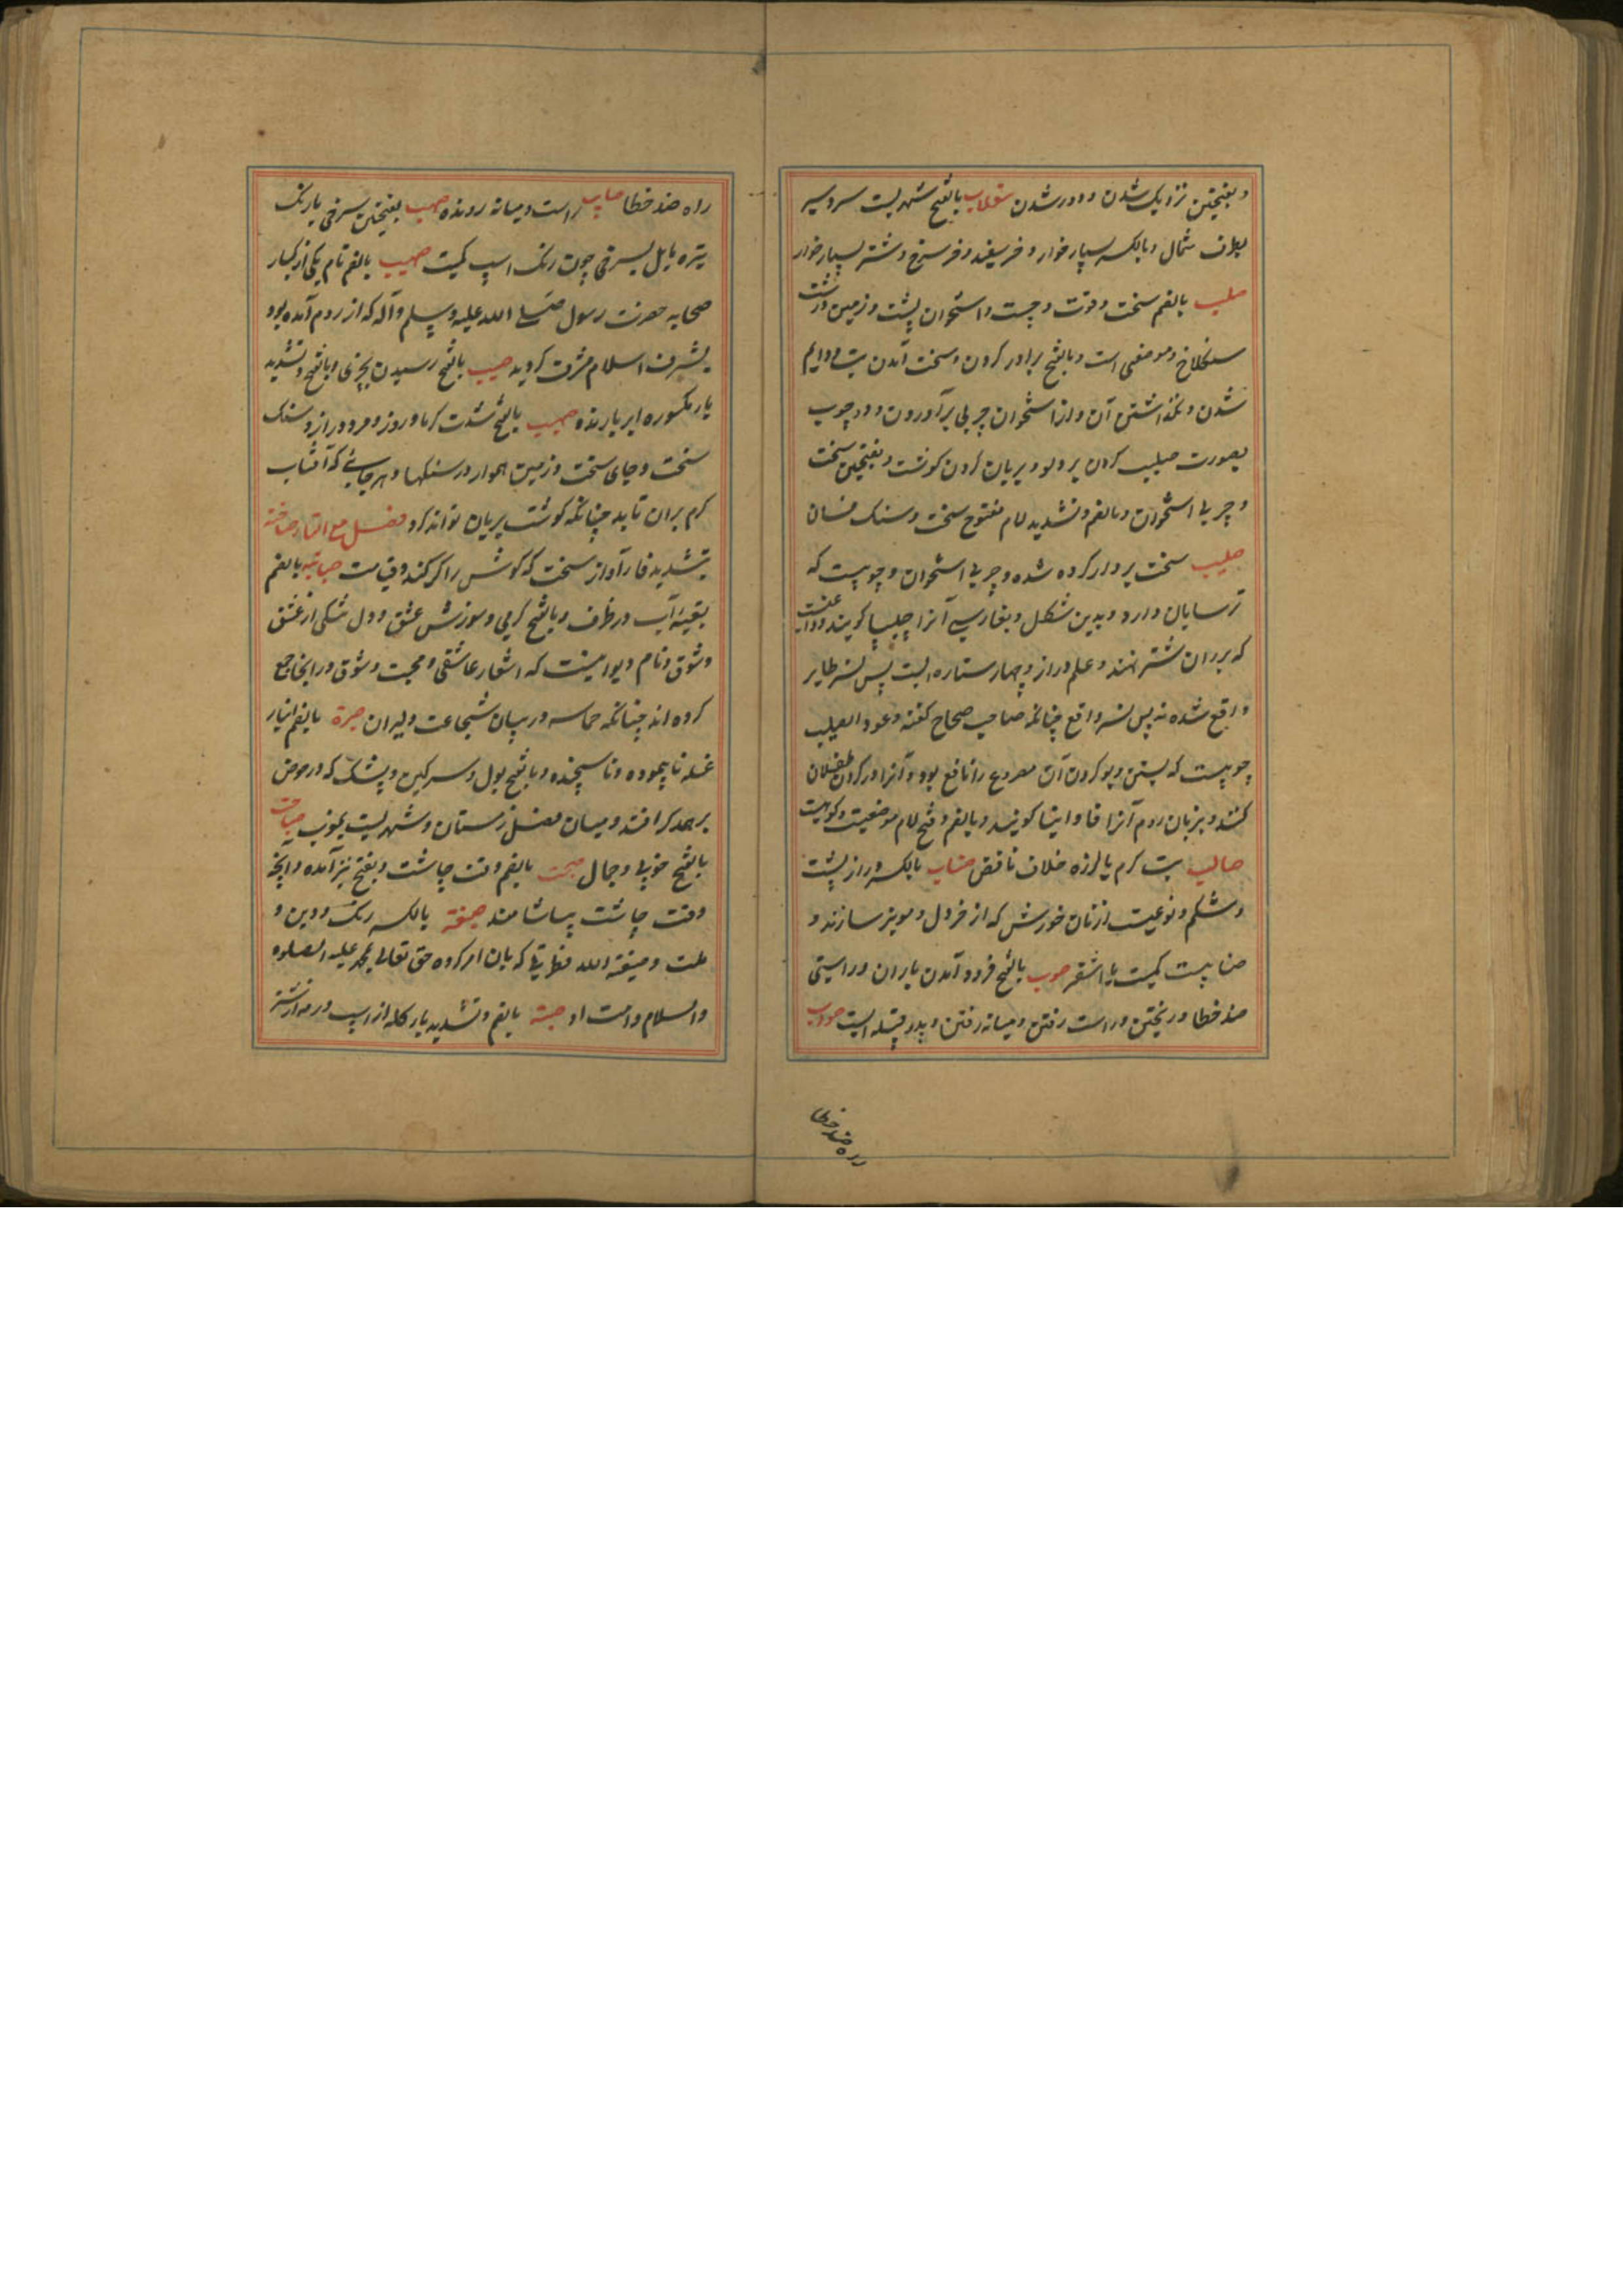 و بفتحتین نزدیک شدن و دور شدن سقلاب بالفتح شهریست سردسیر
بطرف شمال و بالکسر بسیار خوار و فربه سفید و سرخ و شتر بسیار خوار
صلب بالضم سخت و قوت و چست و استخوان پشت و زمین درشت
سنکلاخ و موضعی است و بالفتح بردار کردن و سخت آمدن تب و دایم
شدن و نگذاشتن آن و از استخوان چربی برآوردن و در چوب
بصورت صلیب کردن بر دلو و بریان کردن کوشت و بفتحتین سخت
و چربی استخوان و بالضم و تشدید لام مفتوح سخت و سنک فسان
صلیب سخت بردار کرده شده و چربی استخوان و چوبیست که
ترسایان دارد و بدین شکل و بفارسی آنرا چلیپا کویند و داغیست
که بر ران شتر نهند و علم دراز و چهار ستاره است پس نسر طایر
واقع شده نه پس نسر واقع چنانکه صاحب صحاح کفته و عود الصلیب
چوبیست که بستن و بو کردن آن مصروع را نافع بود و آنرا در کردن طفلان
کنند و بزبان روم آنرا فاوانیا کویند و بالضم و فتح لام موضعیست و کوهیست
صالب تب کرم با لرزه خلاف نافض صناب بالکسر دراز پشت
و شکم و نوعیست از نان خورش که از خردل و مویز سازند و
صنابیست کمیت یا اشقر صوب بالفتح فرود آمدن باران و راستی
ضد خطا و ریختن و راست رفتن و میانه رفتن و پدر قبیله ایست صواب
راه ضد خطا
راه ضد خطا صایب راست و میانه رونده صهب بفتحتین سرخی یا رنک
تیره مایل بسرخی چون رنک اسپ کمیت صهیب بالضم نام یکی از کبار
صحابه حضرت رسول صلی الله علیه و سلم و آله که از روم آمده بود
بشرف اسلام مشرف کردید صیب بالفتح رسیدن بچیزی و بالفتح و تشدید
یا مکسوره ابر بارنده صیهب بالفتح شدت کرما و روز و مرد دراز و سنک
سخت و جای سخت و زمین هموار و سنکها و هر جایی که آفتاب
کرم بران تابد چنانکه کوشت بریان تواند کرد فصل مع التاء صاخة
بتشدید خا آواز سخت که کوش را کر کند و قیامت صبابة بالضم
بقیه آب در ظرف و بالفتح کرمی و سوزش عشق و دل تنگی از عشق
و شوق و نام دیوانیست که اشعار عاشقی و محبت و شوق در انجا جمع
کرده اند چنانکه حماسه در بیان شجاعت دلیران صبرة بالضم انبار
غله ناپیموده و ناسنجیده و بالفتح بول و سرکین و پشک که در حوض
برهم کرافتد و میان فصل زمستان و شهریست بمغرب صباحت
بالفتح خوبی و جمال صبحت بالضم وقت چاشت و بفتح نیز آمده و آنچه
وقت چاشت بیاشامند صبغة بالکسر رنک و دین و
ملت و صبغة الله فطرتی که بان امر کرده حق تعالی محمد علیه الصلوة
والسلام و امت او صبة بالضم و تشدید با کله از اسپ و رمه از شتر